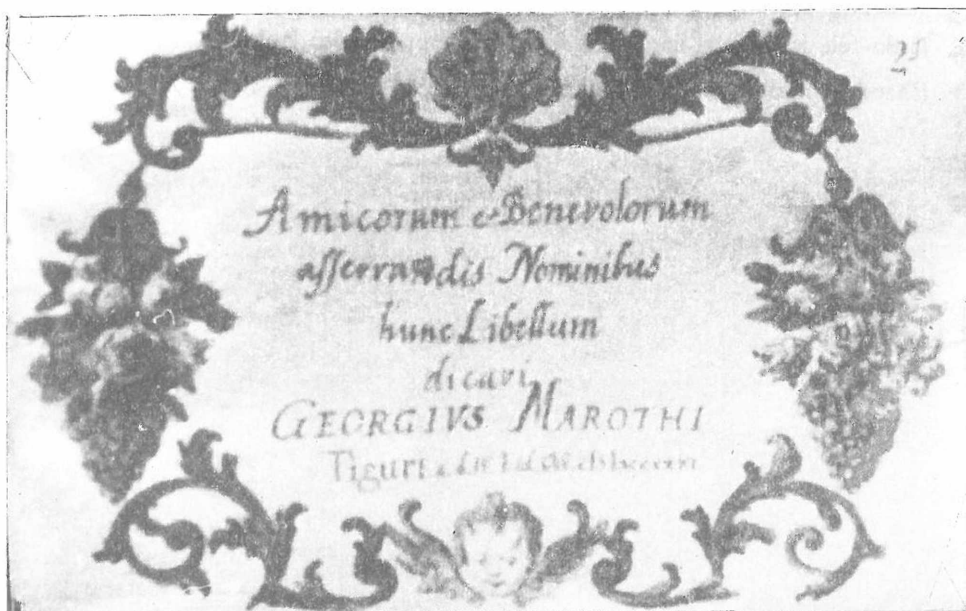 21
Amicorum & Benevolorum
asservandis Nominibus
hunc Libellum
dicavi
GEORGIVS MAROTHI
Tiguri